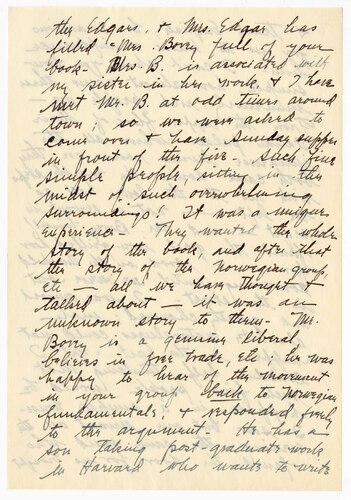 the Edgars, & Mrs. Edgar has
filled Mrs. Bovey full of your
book. Mrs. B. is associated with
my sister in her work, & I have
met Mr. B. at odd times around
town; so we were asked to
come over & have Sunday supper
in front of the fire. Such fine
simple people sitting in the
midst of such overwhelming
surroundings! It was a unique
experience. They wanted the whole
story of the book, and after that
the story of the Norwegian group,
etc — all we have thought &
talked about — it was an
unknown story to them. Mr.
Bovey is a genuine liberal,
believes in free trade, etc; he was
happy to hear of the movement
in your group back to Norwegian
fundamentals, & responded freely
to the argument. He has a
son taking post-graduate work
in Harvard who wants to write